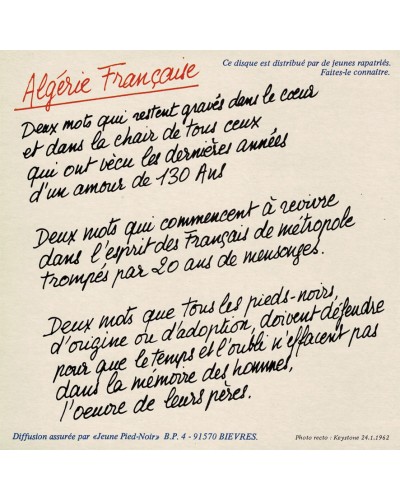 Algérie Française
Ce disque est distribué par de jeunes rapatriés.
Faites-le connaître.
Deux mots qui restent gravés dans le cœur
et dans la chair de tous ceux
qui ont vécu les dernières années
d'un amour de 130 Ans
Deux mots qui commencent à revivre
dans l'esprit des Français de métropole
trompés par 20 ans de mensonges.
Deux mots que tous les pieds-noirs,
d'origine ou d'adoption, doivent défendre
pour que le temps et l'oubli n'effacent pas
dans la mémoire des hommes,
l'oeuvre de leurs pères.
Diffusion assurée par «Jeune Pied-Noir» B.P. 4 - 91570 BIEVRES.
Photo recto : Keystone 24.1.1962